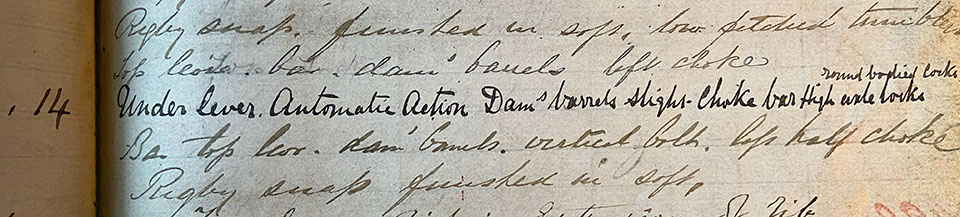 Rigby snap. finished in soft, low pitched tumbler
top lever. bar. dam' barrels left choke
round bodied locks
. 14 Under lever. Automatic Action Dams barrels slight choke bar High locks
Bar top lever. dam' barrels. vertical bolt. left half choke
Rigby snap finished in soft,
of rib